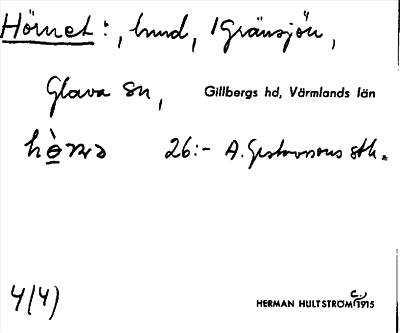 Hörnet:, hund, i Gränsjön,
Glava sn, Gillbergs hd, Värmlands län
26:- A. Gustavssons stk.
4(4) HERMAN HULTSTRÖM C. 1915